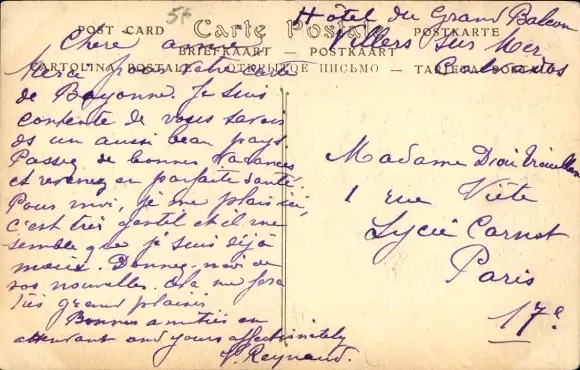 57
Hôtel du Grand Balcon
Villers sur Mer
Calvados
POST CARD
Carte Postale
POSTKARTE
BRIEFKAART — POSTKAART
CARTOLINA POSTALE ОТКРЫТОЕ ПИСЬМО — TARJETA POSTAL
Chère amie
Merci pour votre carte
de Bayonne. Je suis
contente de vous savoir
ds un aussi beau pays.
Passez de bonnes vacances
et revenez en parfaite santé
Pour moi, je me plais ici,
c'est très gentil et il me
semble que je suis déjà
mieux. Donnez-moi de
vos nouvelles. Cela me fera
très grand plaisir
Bonnes amitiés en
attendant and yours affectionately
Reynaud.
Madame
1 rue Viète
Lycée Carnot
Paris
17e